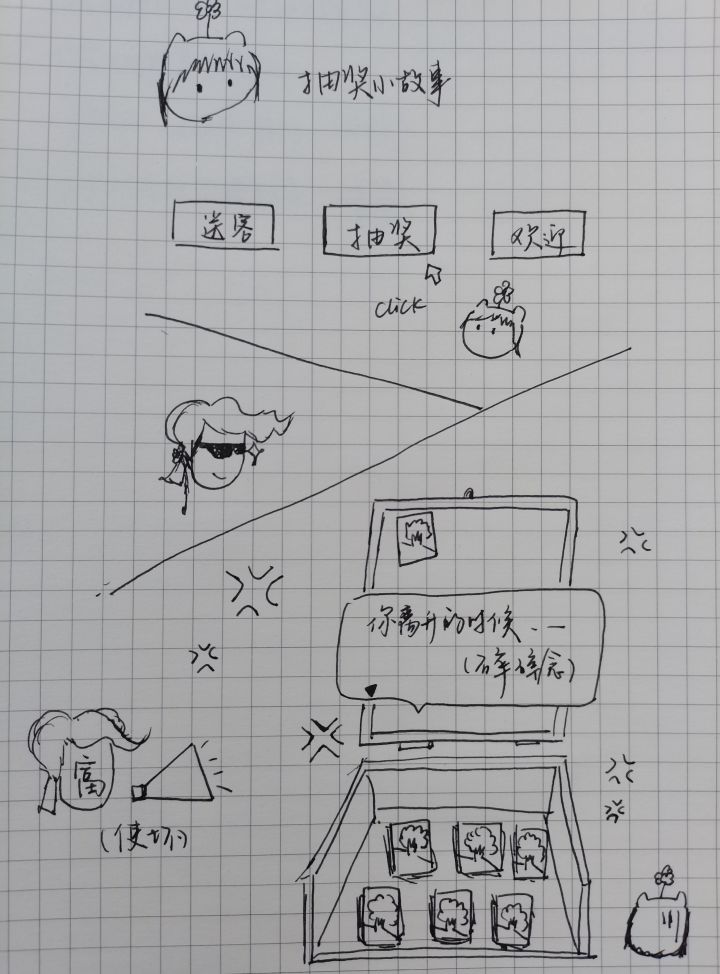 抽奖小故事
送客
抽奖
欢迎
click
你离开的时候……
(碎碎念)
富
(使坏)